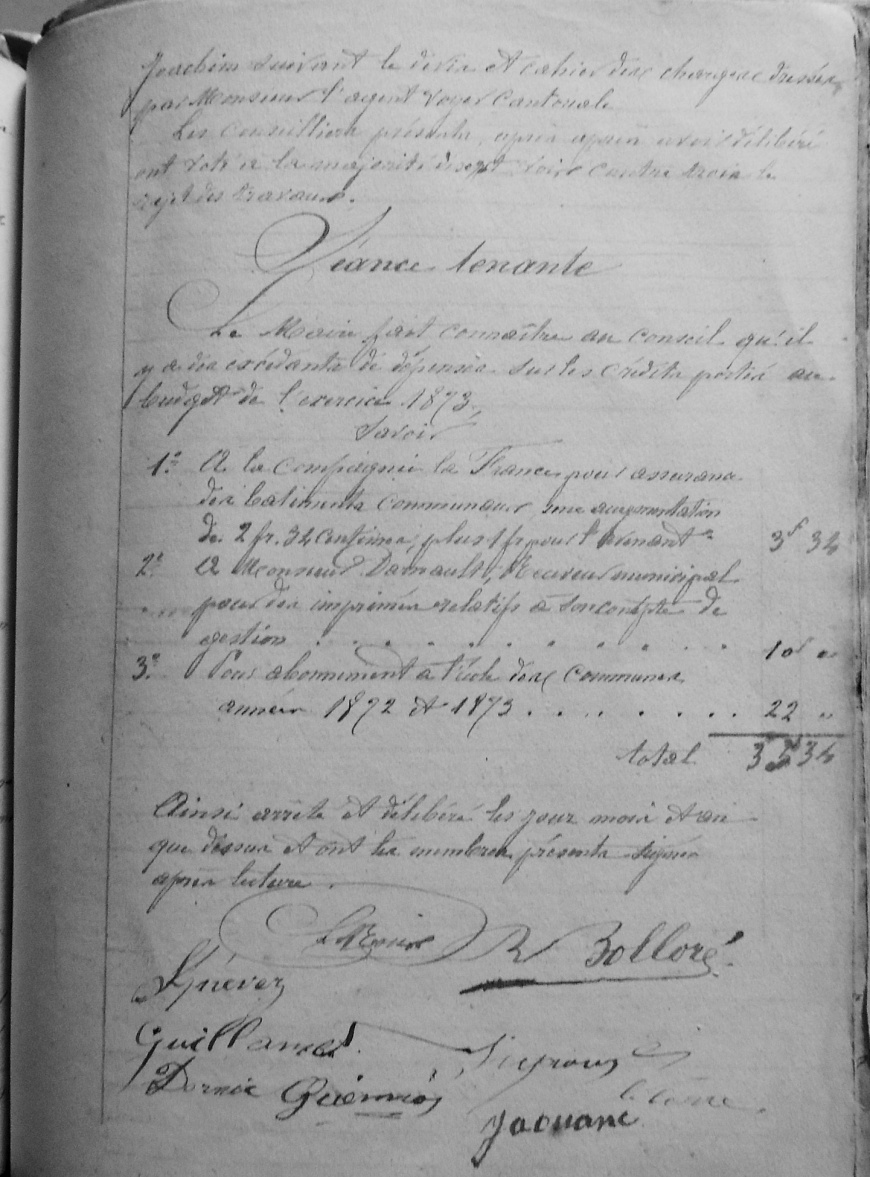 Joachim suivant le devis et cahier des charges dressés
par Monsieur l'agent voyer cantonal.
Les conseillers présents, après après avoir délibéré
ont voté à la majorité de sept voix contre trois le
rejet des travaux.
Séance tenante
Le Maire fait connaître au conseil qu'il
y a des excédants de dépenses sur les crédits portés au
budget de l'exercice 1873,
Savoir
1º A la compagnie la France pour assurance
des batiments communaux, une augmentation
de 2 fr. 34 centimes, plus 1 fr pour l'avenant 3f 34
2º A Monsieur Darnault, Receveur municipal
pour des imprimés relatifs à son compte de
gestion . . . . . . . . . 10f "
3º Pour abonnement à l'école des communes
années 1872 et 1873 . . . . . . . 22 "
total 35f 34
Ainsi arrêté et délibéré les jour mois et an
que dessus et ont les membres présents signés
après lecture.
Le Maire R Bolloré
Guillamet
Dornic
Jaouanc